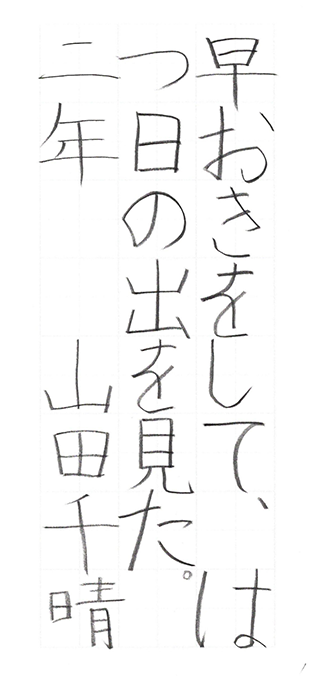 早おきをして、は
つ日の出を見た。
二年　山田千晴